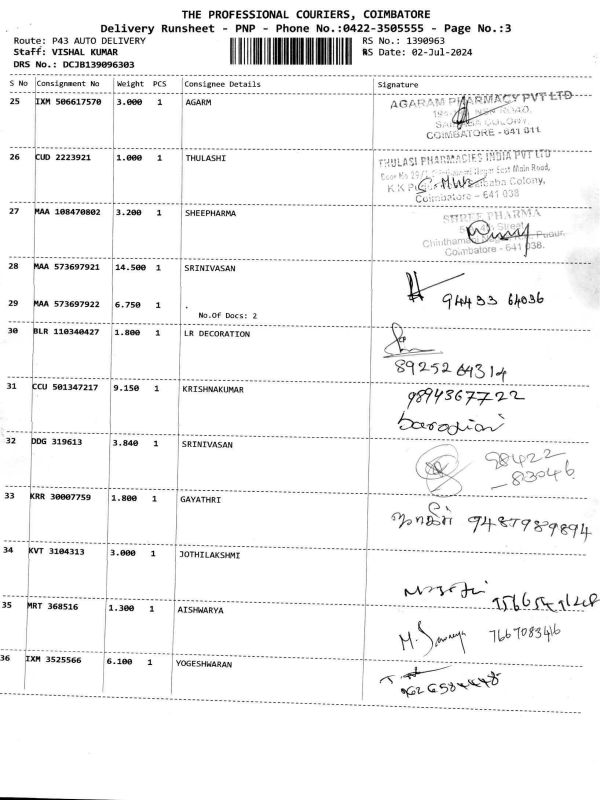 THE PROFESSIONAL COURIERS, COIMBATORE
Delivery Runsheet - PNP - Phone No.:0422-3505555 - Page No.:3
Route: P43 AUTO DELIVERY RS No.: 1390963
Staff: VISHAL KUMAR RS Date: 02-Jul-2024
DRS No.: DCJB139096303
S No Consignment No Weight PCS Consignee Details Signature
25 IXM 506617570 3.000 1 AGARM
AGARAM PHARMACY PVT LTD
COLONY,
COIMBATORE - 641 011
26 CUD 2223921 1.000 1 THULASHI
THULASI PHARMACIES INDIA PVT LTD
East Main Road,
Colony,
Coimbatore - 641 038
27 MAA 108470802 3.200 1 SHEEPHARMA
SHREE PHARMA
Street,
Pudur,
Coimbatore - 641 038.
28 MAA 573697921 14.500 1 SRINIVASAN
94433 64036
29 MAA 573697922 6.750 1 .
No.Of Docs: 2
30 BLR 110340427 1.800 1 LR DECORATION
89252 64314
31 CCU 501347217 9.150 1 KRISHNAKUMAR
9894367722
32 DDG 319613 3.840 1 SRINIVASAN
98422
- 83046
33 KRR 30007759 1.800 1 GAYATHRI
9487989894
34 KVT 3104313 3.000 1 JOTHILAKSHMI
35 MRT 368516 1.300 1 AISHWARYA
7667083416
36 IXM 3525566 6.100 1 YOGESHWARAN